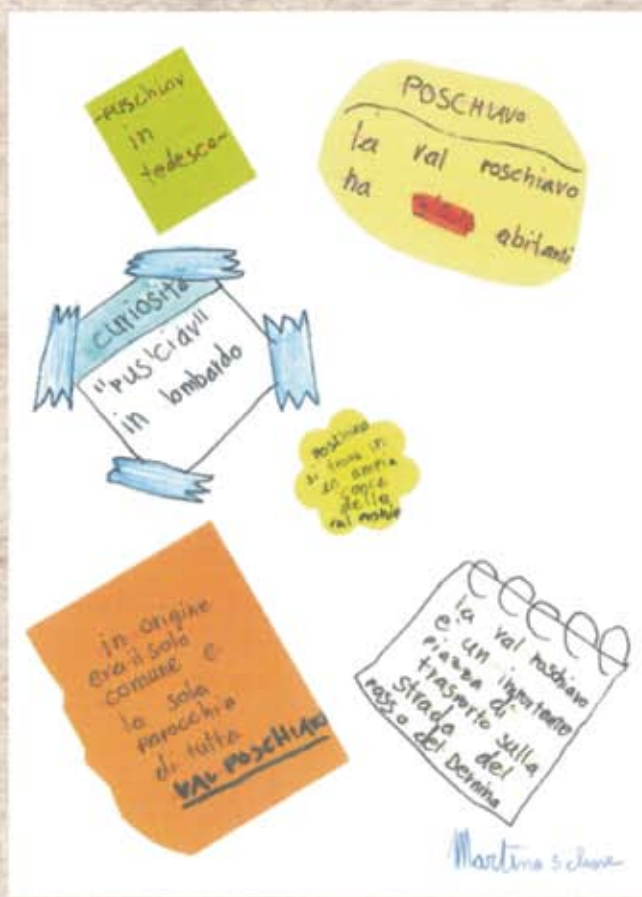 -PUSCHLAV
in
tedesco-
POSCHIAVO
la val poschiavo
ha abitanti
curiosità
"PUS'CIAV"
in lombardo
POSCHIAVO
si trova in
un ampia
conce
della
val
in origine
era il solo
comune e
la sola
parocchia
di tutta
VAL POSCHIAVO
la val poschiavo
e un importante
piazza di
trasporto sulla
strada del
passo del Bernina
Martino 5 classe